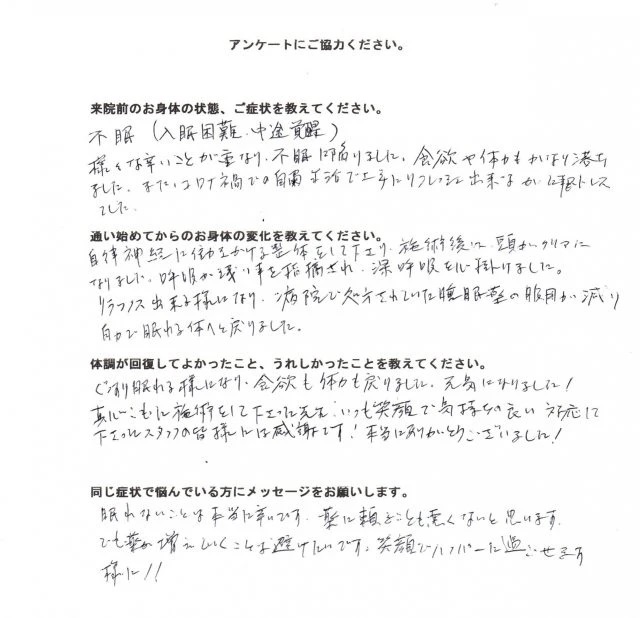 アンケートにご協力ください。
来院前のお身体の状態、ご症状を教えてください。
不眠（入眠困難、中途覚醒）
様々な辛いことが重なり、不眠に陥りました。食欲や体力もかなり落ち
ました。また、コロナ禍での自粛生活で上手にリフレッシュ出来る が ストレス
でした。
通い始めてからのお身体の変化を教えてください。
自律神経に働きかける整体をして下さり、施術後は、頭がクリアに
なりました。呼吸が浅い事を指摘され、深呼吸を心掛けました。
リラックス出来る様になり、病院で処方されていた睡眠薬の服用が減り
自力で眠れる体へと戻りました。
体調が回復してよかったこと、うれしかったことを教えてください。
ぐっすり眠れる様になり、食欲も体力も戻りました。元気になりました！
真心こもった施術をして下さった先生、いつも笑顔で気持ちの良い対応して
下さったスタッフの皆様には感謝です！本当にありがとうございました！
同じ症状で悩んでいる方にメッセージをお願いします。
眠れないことは本当に辛いです。薬に頼ることも悪くないと思います。
でも薬が増えていくことは避けたいです。笑顔で に過ごせます
様に！！